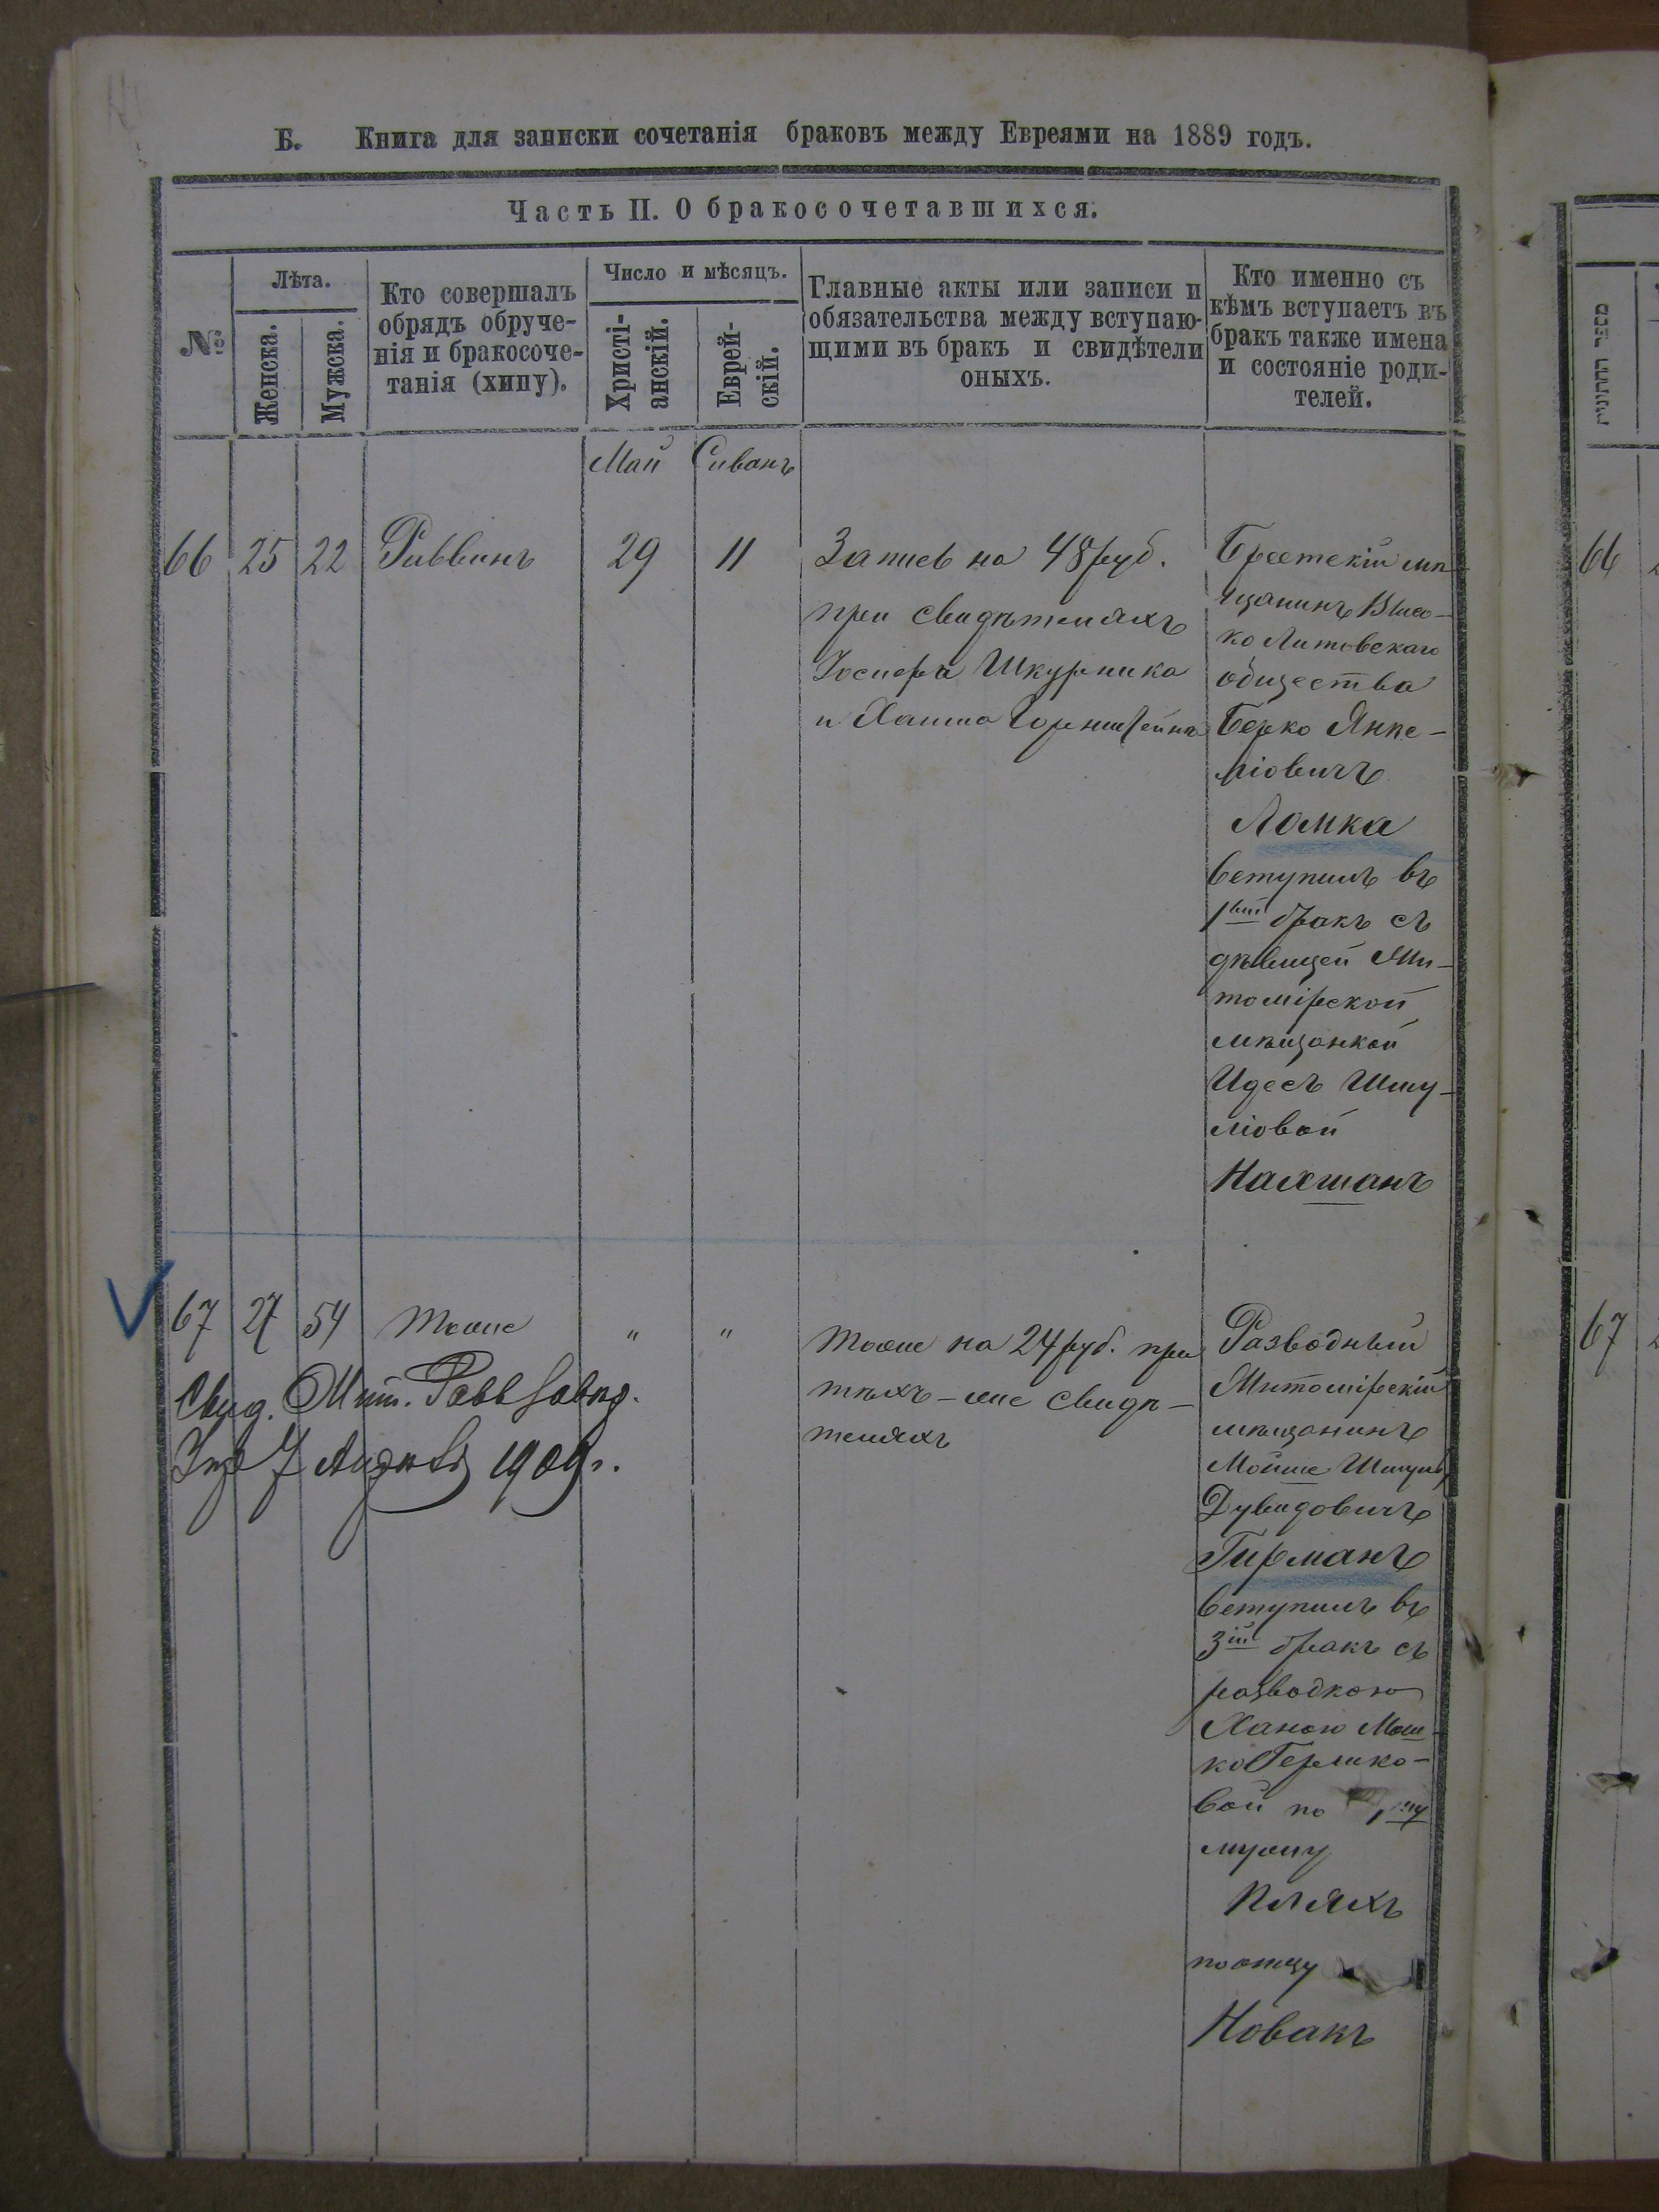 Б. Книга для записки сочетанія браковъ между Евреями на 1889 годъ.
Часть II. О бракосочетавшихся.
№
Лѣта.
Женска.
Мужска.
Кто совершалъ
обрядъ обруче-
нія и бракосоче-
танія (хипу).
Число и мѣсяцъ.
Христі-
анскій.
Еврей-
скій.
Главные акты или записи и
обязательства между вступаю-
щими въ бракъ и свидѣтели
оныхъ.
Кто именно съ
кѣмъ вступаетъ въ
бракъ также имена
и состояніе роди-
телей.
Май Сиванъ
66 25 22 Раввинъ 29 11
Запись на 48 руб.
при свидѣтеляхъ
Іосифа Шкурника
и Хаима Горенштейна
Брестскій мѣ-
щанинъ Высо-
ко Литовскаго
общества
Берко Янке-
ліовичъ
Ломка
вступилъ въ
1вый бракъ съ
дѣвицей Жи-
томірской
мѣщанкой
Идесъ Шму-
ліовой
Нахманъ
67 27 54 Тоже " "
Тоже на 24 руб. при
тѣхъ-же свидѣ-
теляхъ
Свид. Жит.
1909 г.
Разводный
Житомірскій
мѣщанинъ
Мойше Шмуль
Дувидовичъ
Гирманъ
вступилъ въ
3ій бракъ съ
разводкою
Ханою Мош-
ко Гершко-
вой по 1му
мужу
Пляхъ
по отцу
Новакъ
מספר החתונות
66
67